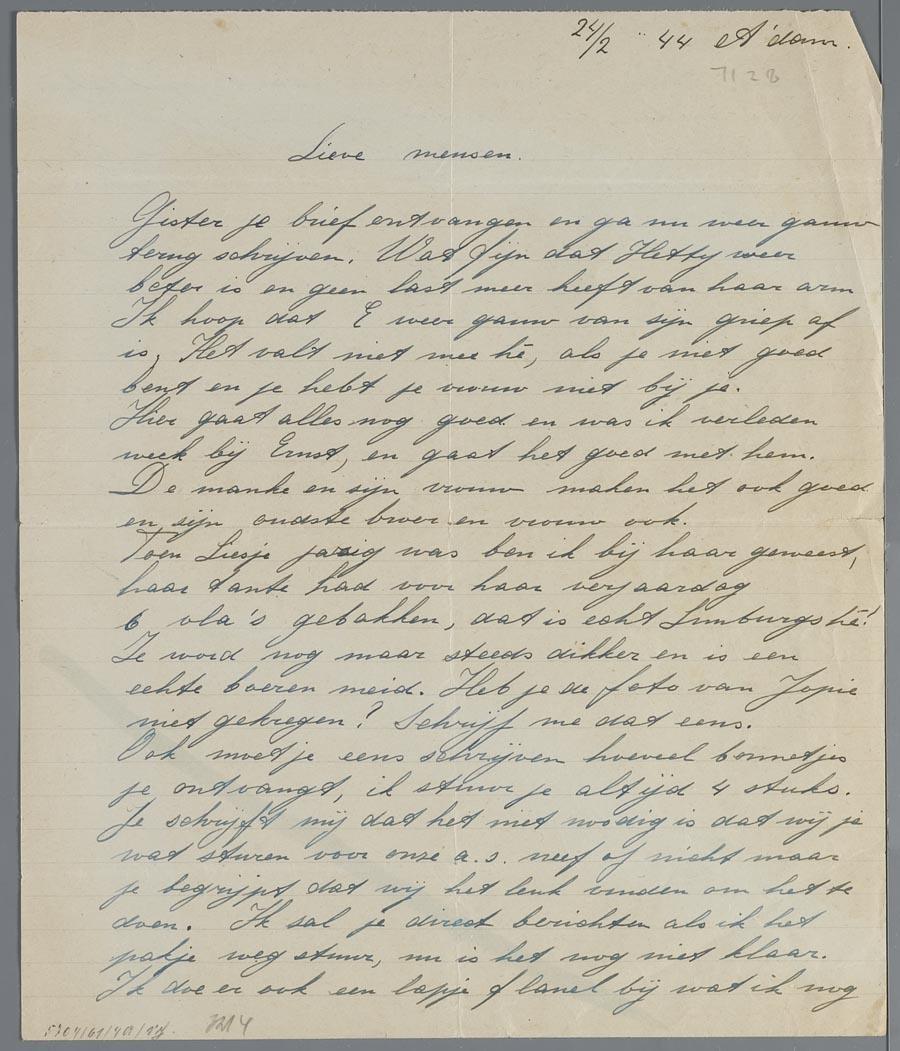 24/2 44 A'dam.
7128
Lieve mensen.
Gister je brief ontvangen en ga nu weer gauw
terug schrijven. Wat fijn dat Hetty weer
beter is en geen last meer heeft van haar arm
Ik hoop dat E weer gauw van sijn griep af
is. Het valt niet mee hè, als je niet goed
bent en je hebt je vrouw niet bij je.
Hier gaat alles nog goed en was ik verleden
week bij Ernst, en gaat het goed met hem.
De manke en sijn vrouw maken het ook goed
en sijn oudste broer en vrouw ook.
Toen Liesje jarig was ben ik bij haar geweest,
haar tante had voor haar verjaardag
6 vla's gebakken, dat is echt Limburgs hè!
Ze word nog maar steeds dikker en is een
echte boeren meid. Heb je de foto van Jopie
niet gekregen? Schrijf me dat eens.
Ook moet je eens schrijven hoeveel bonnetjes
je ontvangt, ik stuur je altijd 4 stuks.
Je schrijft mij dat het niet noodig is dat wij je
wat sturen voor onze a.s. neef of nicht maar
je begrijpt dat wij het leuk vinden om het te
doen. Ik sal je direct berichten als ik het
pakje weg stuur, nu is het nog niet klaar.
Ik doe er ook een lapje flanel bij wat ik nog